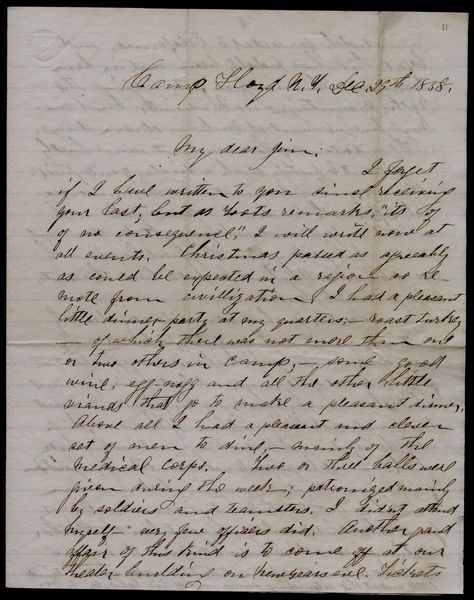 11
Camp Floyd U.T. Dec 29th 1858.
My dear Jim:
I forget
if I have written to you since receiving
your last, but as Toots remarks, "its of
of no consequence", I will write now at
all events. Christmas passed as agreeably
as could be expected in a region so re-
mote from civillization. I had a pleasant
little dinner party at my quarters;- roast turkey
- of which there was not more than one
or two others in camp, - some good
wine, egg-nogg and all the other little
viands that go to make a pleasant dinner.
Above all I had a pleasant and clever
set of men to dine, - mainly of the
medical corps. Two or three balls were
given during the week; patronized mainly
by soldiers and teamsters. I didn't attend
myself - very few officers did. Another grand
affair of this kind is to come off at our
theater building on newyears eve. Tickets